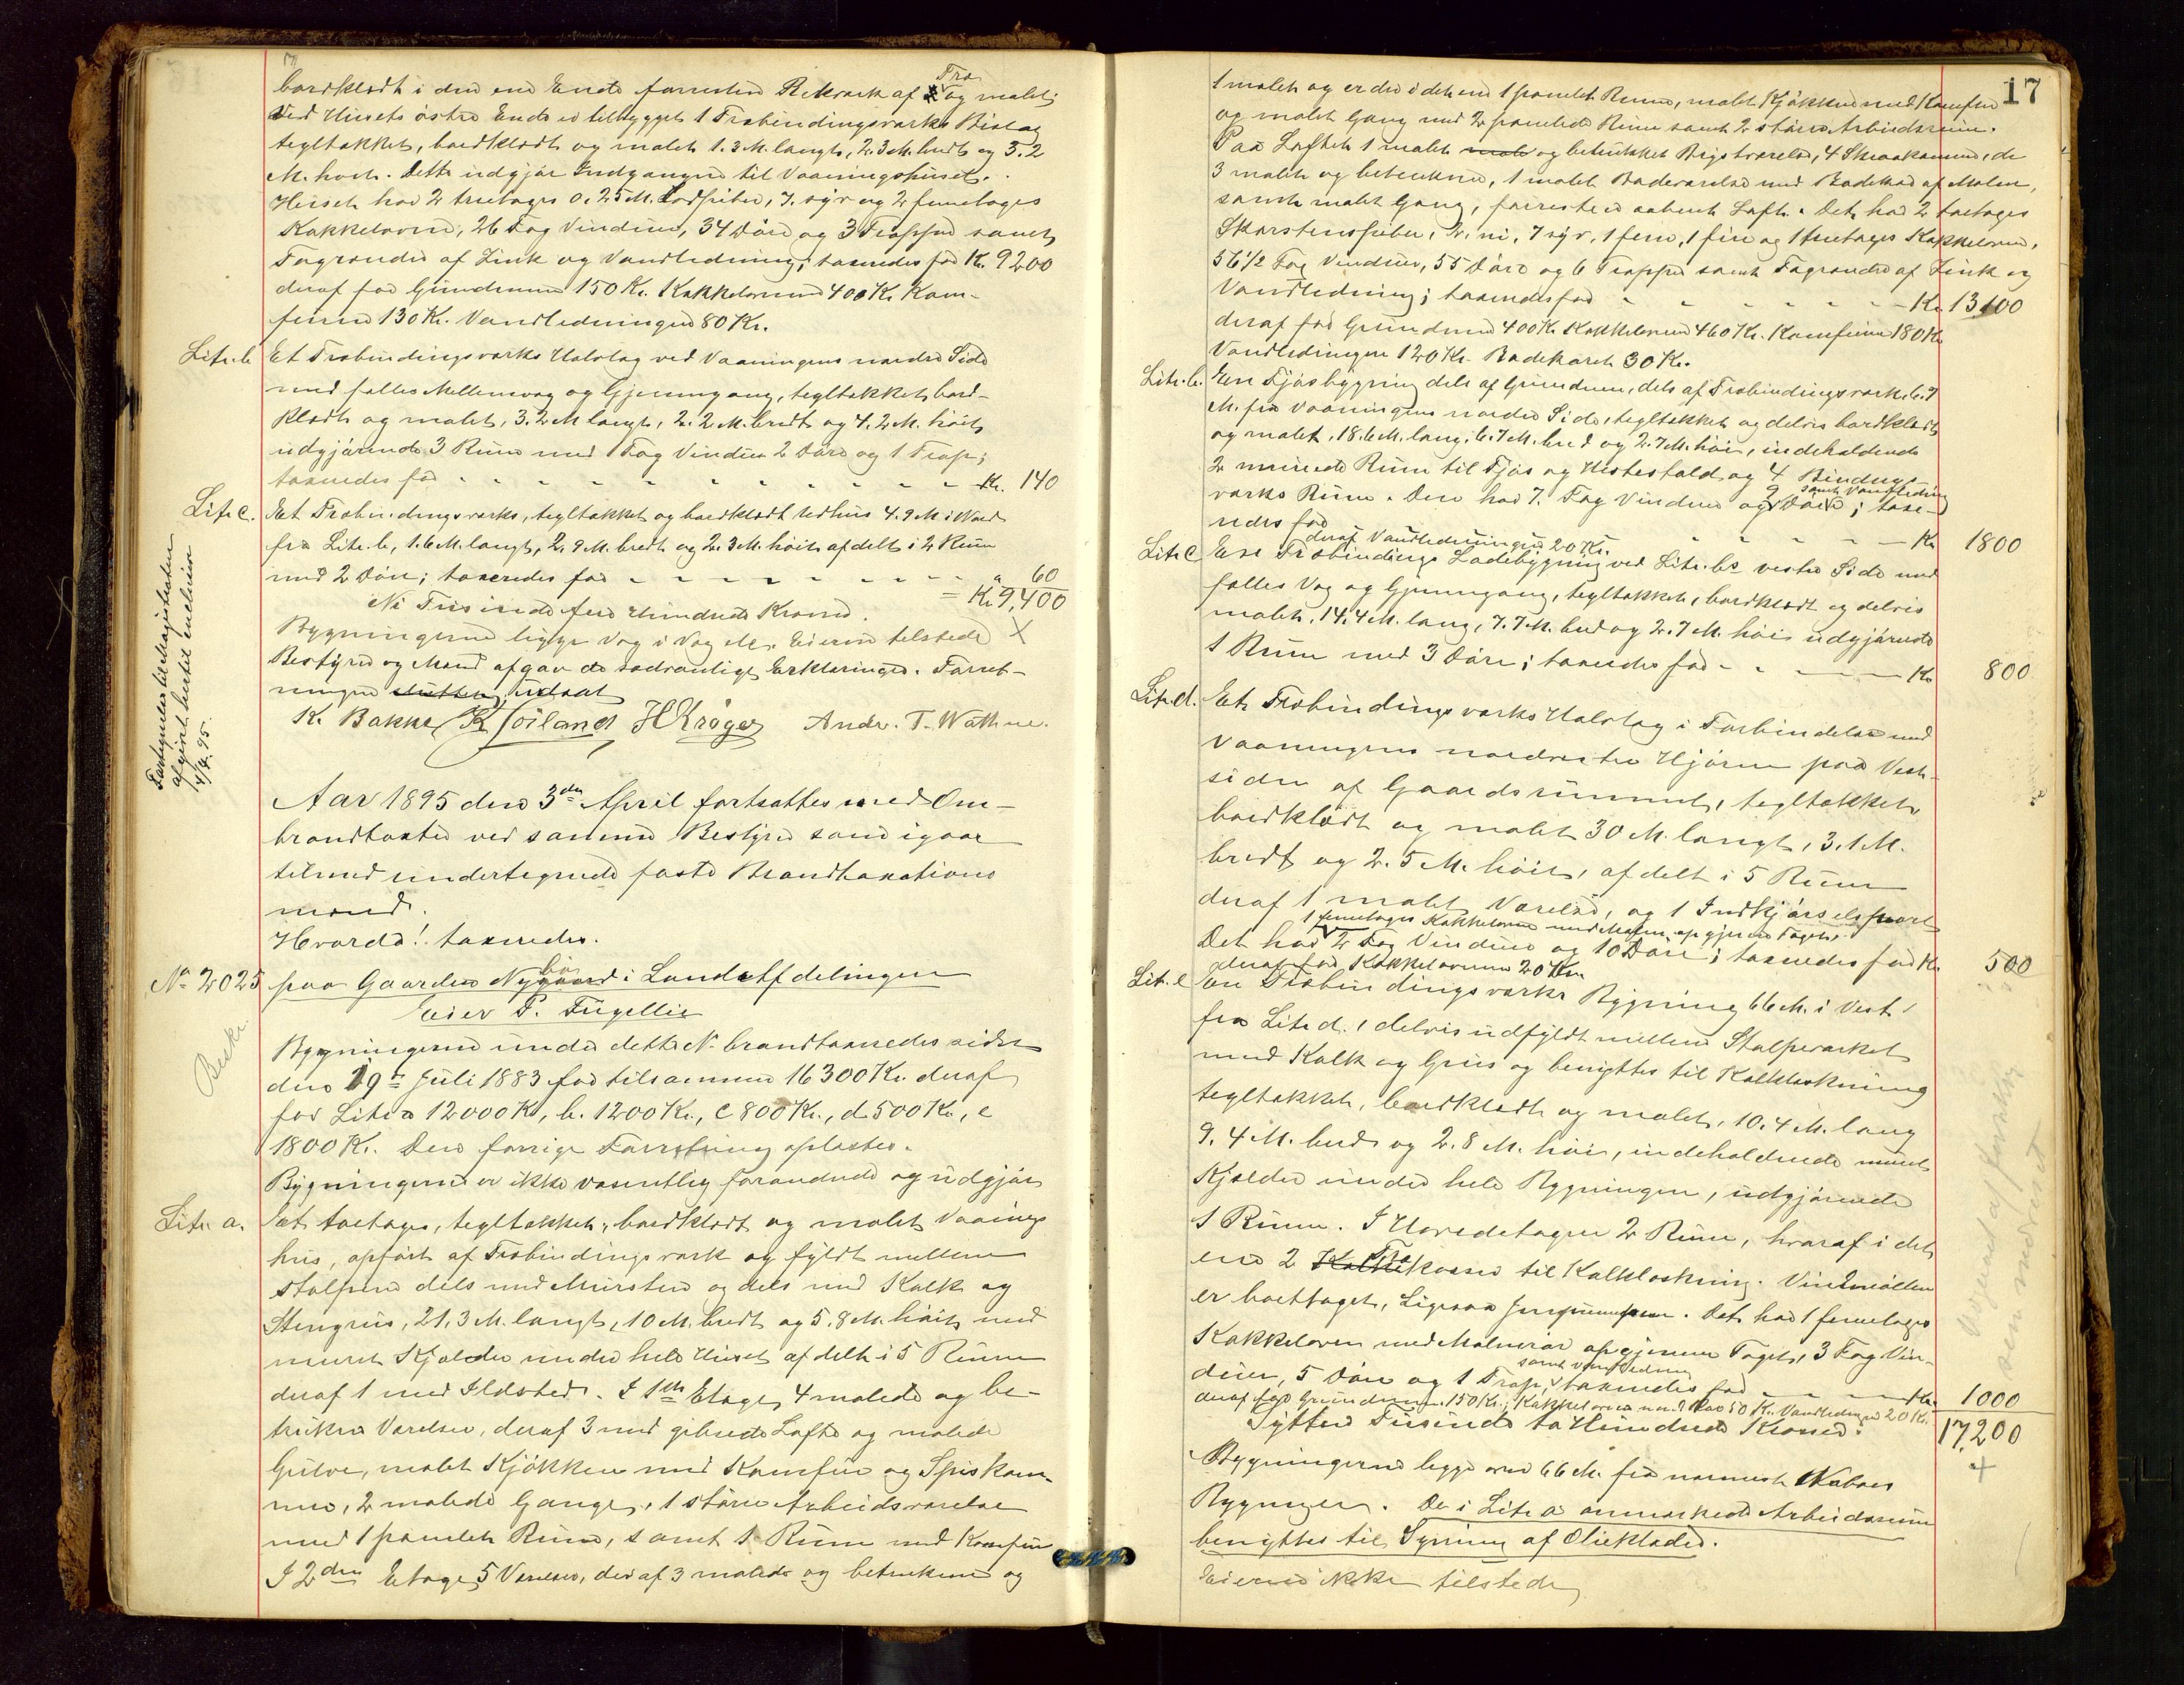 bordklædt i den ene Ende forresten Rekværk af Træ og malet;
Ved Husets östre Ende er tilbygget 1 Træbindingsværks Bislag
tegltækket, bordklædt og malet 1.3 M. langt, 2.3 M. bredt og 3.2
M. höit. Dette udgjör Indgangen til Vaaningshuset.
Huset har 2 treetages 0.25 M. Lodpiber, 7. syv og 2 femetages
Kakkelovne, 26 Fag Vinduer, 34 Döre og 3 Trapper samt
Tagrender af Zink og Vandledning; taxeredes for Kr. 9200
deraf for Grundmuren 150 Kr. Kakkelovnene 400 Kr. Kom-
furene 130 Kr. Vandledningen 80 Kr.
Litr. b Et Træbindingsværks Halvtag ved Vaaningens nordre Side
med fælles Mellemvæg og Gjennemgang, tegltækket, bord-
klædt og malet, 3.2 M langt, 2.2 M. bredt og 4.2 M. höit
udgjörende 3 Rum med 1 Fag Vindue 2 Döre og 1 Trap;
taxeredes for - - - - Kr. 140
Litr c. Et Træbindingsværks, tegltækket og bordklædt Udhus 4.9 M i Nord
fra Litr. b, 1.6 M. langt, 2.9 M. bredt og 2.3 M. höit afdelt i 2 Rum
med 2 Döre; taxeredes for - - - - " 60
= Kr 9,400
Ni Tusinde fire Hundrede Kroner.
Bygningerne ligge Væg i Væg etc. Eieren tilstede X
Bestyrer og Mænd afgav de sædvanlige Erklæringer. Forret-
ningen sluttet, udsat
K. Bakke K Soiland H Kröger Andr. T. Wathne.
Fortegnelse til Magistraten
afgivet hertil inclusive
4/4. 95.
Aar 1895 den 3die April fortsattes med Om-
brandtaxter ved samme Bestyrer som igaar
tilmed undertegnede faste Brandtaxations
mænd.
Hvorda! taxeredes.
No 2025 paa Gaarden Nygaard i Landafdelingen
Eier P. Fügellie
Beskr.
Bygningerne under dette No brandtaxeredes sidst
den 19de Juli 1883 for tilsammen 16300 Kr. deraf
for Litr a 12000 Kr, b. 1200 Kr., c 800 Kr., d 500 Kr., e
1800 Kr. Den forrige Forretning oplæstes.
Bygningerne er ikke væsentlig forandrede og udgjör
Litr a. Et toetages, tegltækket, bordklædt og malet Vaanings
hus, opfört af Træbindingsværk og fyldt mellem
Stolperne dels med Mursten og dels med Kalk og
Stengrus, 21.3 M. langt, 10 M. bredt og 5.8 M. höit med
muret Kjælder under hele Huset afdelt i 5 Rum
deraf 1 med Ildsted. I 1ste Etage, 4 malede og be-
trukne Værelser, deraf 3 med gibsede Lofte og malede
Gulve, malet Kjökken med Komfur og Spiskam-
mer, 2 malede Gange, 1 större Arbeidsværelse
med 1 panelet Rum, samt 1 Rum med Komfur
I 2den Etage, 5 Værelser, deraf 3 malede og betrukne og
17
1 malet og er der i det ene 1 panelet Rum, malet Kjökken med Komfur
og malet Gang med 2 panelede Rum samt 2 större Arbeidsrum.
Paa Loftet 1 malet og betrukket Kvistværelse, 4 Skraakamre, de
3 malet og betrukne, 1 malet Badeværelse med Badekar af
samt malet Gang, forresten aabent Loft. Det har 2 toetages
Skorstenspiber, 2. ni, 7 syv, 1 fem, 1 fire og 1 treetages Kakkelovne,
56 1/2 Fag Vinduer, 55 Döre og 6 Trapper samt Tagrender af Zink og
Vandledning; taxeredes for - - - - Kr 13100
deraf for Grundmur 400 Kr. Kakkelovnene 460 Kr. Komfurene 180 Kr
Vandledningen 120 Kr. Badekaret 30 Kr.
Litr. b. En Fjösbygning dels af Grundmur, dels af Træbindingsværk, 6.9
M. fra Vaaningens nordre Side, tegltækket og delvis bordklædt
og malet, 18.6 M. lang, 6.7 M. bred og 2.7 M. höi, indeholdende
2 murede Rum til Fjös og Hestestald og 4 Bindings-
værks Rum. Den har 7. Fag Vinduer og 9 Döre samt Vandledning; taxe-
redes for - - - - Kr 1800
deraf Vandledningen 20 Kr.
Litr c En Træbindings Ladebygning ved Litr. bs vestre Side med
fælles Væg og Gjennemgang, tegltækket, bordklædt og delvis
malet, 14.4 M. lang, 7.7 M. bred og 2.7 M. höi udgjörende
1 Rum med 3 Döre; taxeredes for - - - - Kr 800
Litr. d. Et Træbindingsværks Halvtag i Forbindelse med
Vaaningens nordvestre Hjörne paa Vest-
siden af Gaardsrummet, tegltækket
bordklædt og malet 30 M. langt, 3.1 M.
bredt og 2.5 M. höit, afdelt i 5 Rum
deraf 1 malet Værelse, og 1 Indkjörselsport
1 femetages Kakkelovn med op gjennem Taget,
Det har 2 Fag Vinduer og 10 Döre; taxeredes for Kr. 500
deraf for Kakkelovnen 20 Kr
Litr. e En Træbindingsværks Bygning 66 M. i Vest
fra Litr d., delvis udfyldt mellem Stolpeværket
med Kalk og Grus og benyttes til Kalklæskning
tegltækket, bordklædt og malet, 10.4 M. lang
9.4 M. bred og 2.8 M. höi, indeholdende muret
Kjælder under hele Bygningen, udgjörende
1 Rum. I Hovedetagen 2 Rum, hvoraf i det
ene 2 Trækasser til Kalkløskning. Vindmöllen
er borttaget, Ligesaa . Det har 1 femetages
Kakkelovn med op gjennem Taget, 3 Fag Vin-
duer, 5 Döre og 1 Trap, samt Vandledning taxeredes for - - - - Kr. 1000
deraf for Grundmuren 150 Kr., Kakkelovnen med Rör 50 Kr. Vandledningen 20 Kr.
Sytten Tusinde to Hundrede Kroner. 17,200
Bygningerne ligge over 66 M. fra nærmeste Naboes
Bygninger. De i Litr a anmærkede Arbeidsrum
benyttes til Syning af Olieklæder.
Eieren ikke tilstede